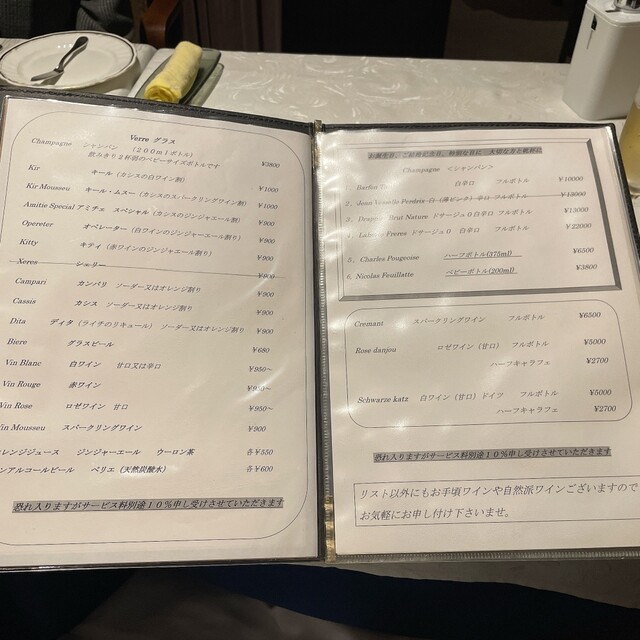 Verre グラス
Champagne シャンパン （２００ｍｌボトル） ¥3800
飲みきり２杯弱のベビーサイズボトルです
Kir キール（カシスの白ワイン割） ¥1000
Kir Mousseu キール・ムスー（カシスのスパークリングワイン割） ¥1000
Amitie Special アミチェ スペシャル（カシスのジンジャエール割） ¥900
Opereter オペレーター（白ワインのジンジャーエール割り） ¥900
Kitty キティ（赤ワインのジンジャーエール割） ¥900
Xeres シェリー ¥900
Campari カンパリ ソーダー又はオレンジ割り ¥900
Cassis カシス ソーダー又はオレンジ割り ¥900
Dita ディタ（ライチのリキュール） ソーダー又はオレンジ割り ¥900
Biere グラスビール ¥680
Vin Blanc 白ワイン 甘口又は辛口 ¥950~
Vin Rouge 赤ワイン
Vin Rose ロゼワイン 甘口 ¥950~
in Mousseu スパークリングワイン ¥900
レンジジュース ジンジャーエール ウーロン茶 各¥550
ンアルコールビール ペリエ（天然炭酸水） 各¥600
恐れ入りますがサービス料別途１０％申し受けさせていただきます
お誕生日、ご結婚記念日、特別な日に 大切な方と乾杯に
Champagne ＜シャンパン＞
1, 白辛口 フルボトル ¥10000
2, フルボトル ¥13000
3, Brut Nature ドサージュ０白辛口 フルボトル ¥13000
4, Freres ドサージュ０ 白辛口 フルボトル ¥22000
5, Charles Pougeoise ハーフボトル(375ml) ¥6500
6, Nicolas Feuillatte ベビーボトル(200ml) ¥3800
Cremant スパークリングワイン フルボトル ¥6500
Rose danjou ロゼワイン（甘口） フルボトル ¥5000
ハーフキャラフェ ¥2700
Schwarze katz 白ワイン（甘口）ドイツ フルボトル ¥5000
ハーフキャラフェ ¥2700
恐れ入りますがサービス料別途１０％申し受けさせていただきます
リスト以外にもお手頃ワインや自然派ワインございますので
お気軽にお申し付け下さいませ。